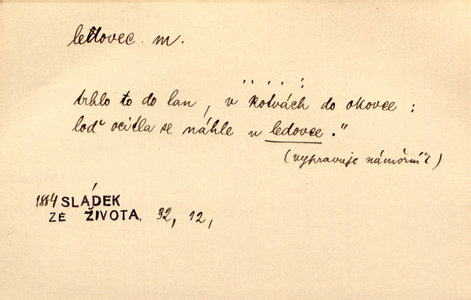 ledovec m.
. . . . :
trhlo to do lan, v kotvách do okovce :
loď ocitla se náhle u ledovce."
(vypravuje námořník)
1884 SLÁDEK
ZE ŽIVOTA, 92, 12,